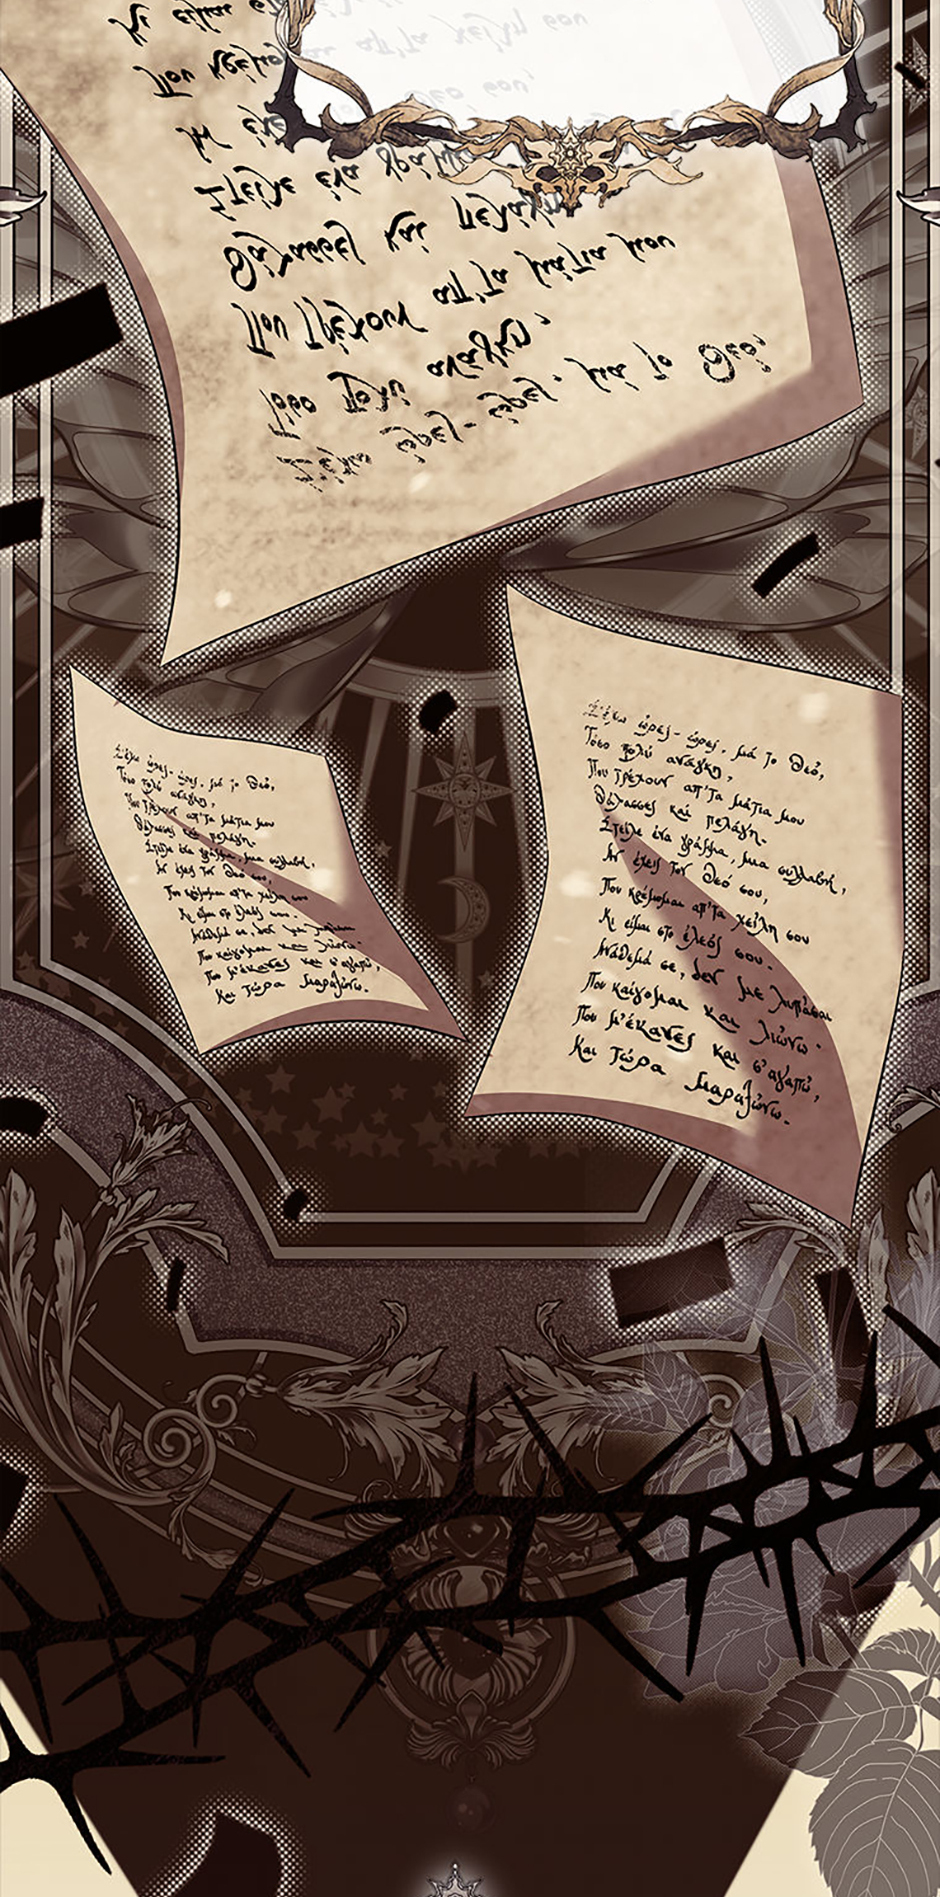 Κι είμαι
Που κρέμομαι απ'τα χείλη σου
Αν έχε Θεό σου,
Στείλε ένα γράμμα
Θάλασσες και πελάγη
Που τρέχουν απ'τα μάτια μου
Τόσο πολύ ανάγκη,
Σ'έχω ώρες-ώρες, μά το Θεό,
Σ'έχω ώρες-ώρες, μά το Θεό,
Τόσο πολύ ανάγκη,
Που τρέχουν απ'τα μάτια μου
Θάλασσες και πελάγη.
Στείλε ένα γράμμα, μια συλλαβή,
Αν έχεις τον Θεό σου,
Που κρέμομαι απ'τα χείλη σου
Κι είμαι στο έλεός σου.
Ανάθεμά σε, δεν με λυπάσαι
Που καίγομαι και λιώνω.
Που μ'έκανες και σ'αγαπώ,
Και τώρα μαραζώνω.
Σ'έχω ώρες-ώρες, μά το Θεό,
Τόσο πολύ ανάγκη,
Που τρέχουν απ'τα μάτια μου
Θάλασσες και πελάγη.
Στείλε ένα γράμμα, μια συλλαβή,
Αν έχεις τον Θεό σου,
Που κρέμομαι απ'τα χείλη σου
Κι είμαι στο έλεός σου.
Ανάθεμά σε, δεν με λυπάσαι
Που καίγομαι και λιώνω.
Που μ'έκανες και σ'αγαπώ,
Και τώρα μαραζώνω.